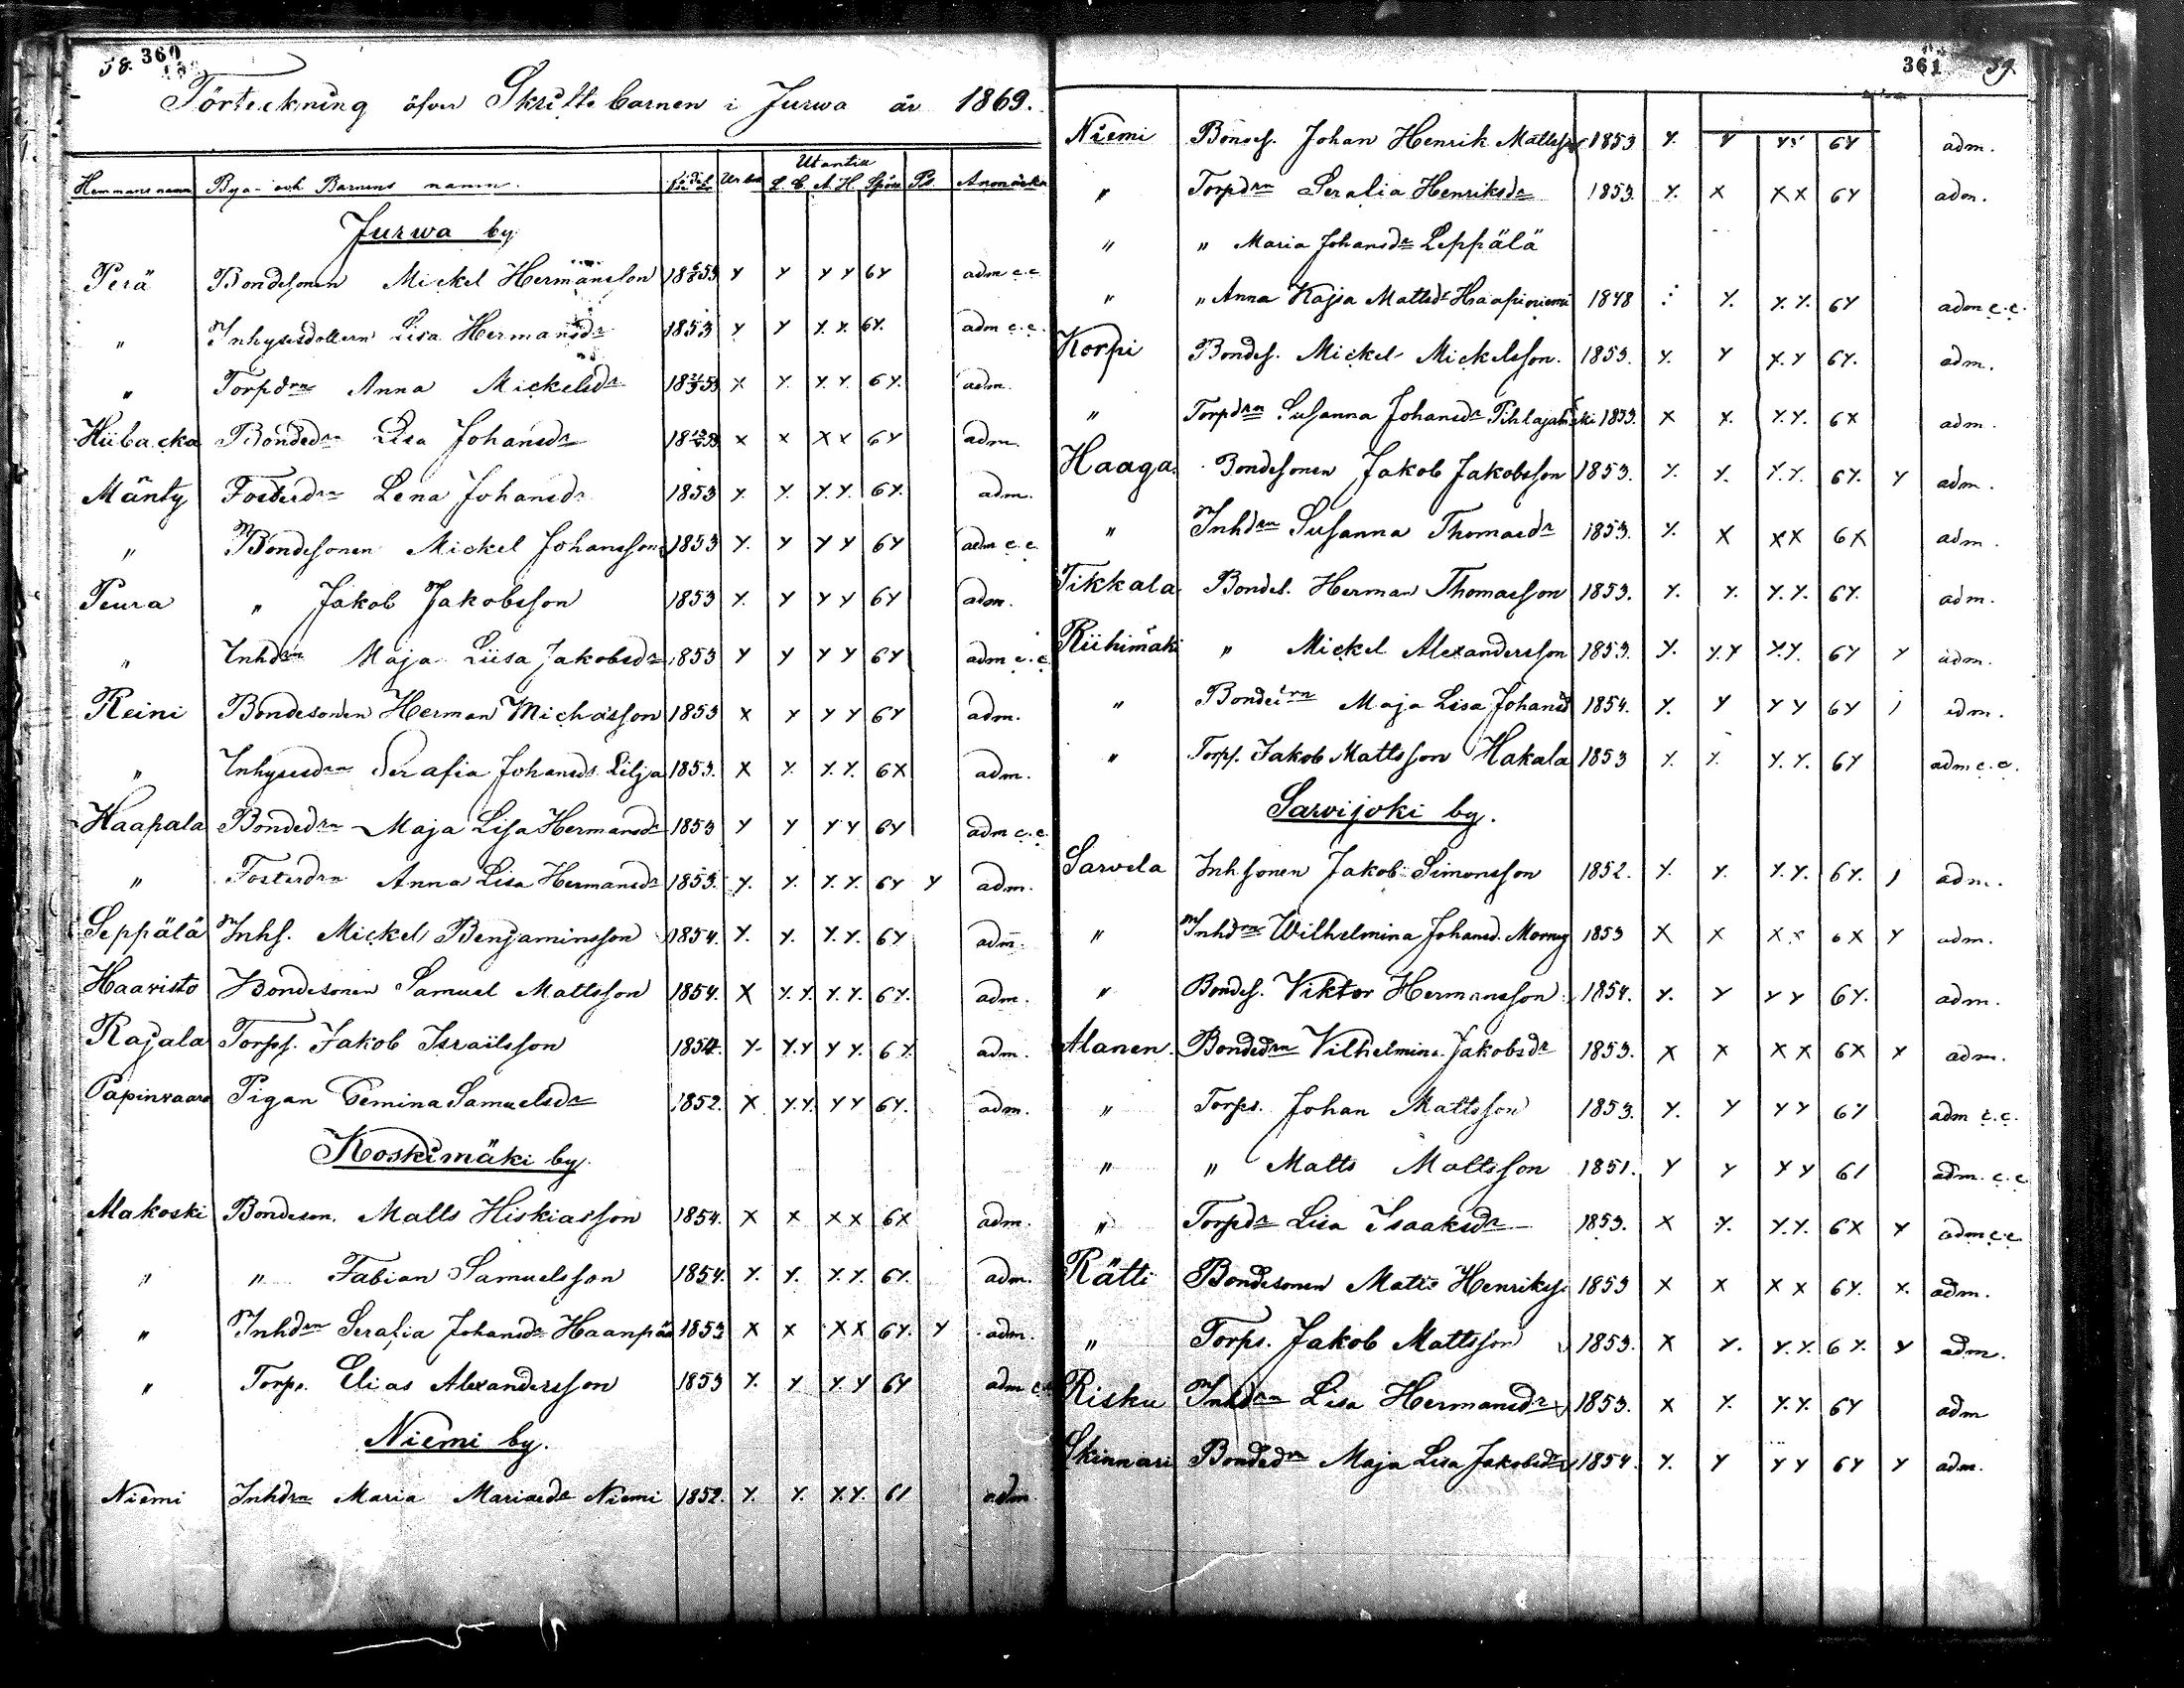 58. 360
Förteckning öfver Skriftebarnen i Jurwa år 1869.
Utantill
Hemmans namn Bya- och Barnens namn. Födel. Ur bok L. C. A. H. Spörs Ps. Anmärkn
Jurwa by
Perä Bondesonen Mickel Hermansson 1853 Y Y Y Y 6Y adm c.c.
" Inhysesdottern Lisa Hermansdr 1853 Y Y Y. Y. 6Y. adm c.c.
" Torpdrn Anna Mickelsdr 1853 X Y. Y. Y. 6Y. adm.
Hiibacka Bondedrn Lisa Johansdr 1853 X X X X 6Y adm.
Mänty Fosterdrn Lena Johansdr 1853 Y. Y. Y. Y. 6Y. adm.
" Bondesonen Mickel Johansson 1853 Y. Y Y Y 6Y adm c.c.
Peura " Jakob Jakobsson 1853 Y. Y Y Y 6Y adm.
" Inhdrn Maja Liisa Jakobsdr 1853 Y Y Y Y 6Y adm c.c.
Reini Bondesonen Herman Michasson 1853 X Y Y Y 6Y adm.
" Inhysesdrn Serafia Johansdr Lilja 1853. X Y. Y. Y. 6X adm.
Haapala Bondedrn Maja Lisa Hermansdr 1853 Y Y Y Y 6Y adm c.c.
" Fosterdrn Anna Lisa Hermansdr 1853. Y. Y. Y. Y. 6Y Y adm.
Seppälä Inhs. Mickel Benjaminsson 1854. Y. Y. Y. Y. 6Y adm.
Haaristo Bondesonen Samuel Mattsson 1854. X Y. Y. Y. Y. 6Y. adm.
Rajala Torps. Jakob Israilsson 1854. Y. Y. Y Y Y. 6Y. adm.
Papinvaara Pigan Gemina Samuelsdr 1852. X Y. Y. Y Y 6Y. adm.
Koskimäki by.
Makoski Bondeson. Matts Hiskiasson 1854. X X X X 6X adm.
" " Fabian Samuelsson 1854. Y. Y. Y. Y. 6Y. adm.
" Inhdrn Serafia Johansdr Haanpää 1853 X X X X 6Y. Y adm.
" Torps. Elias Alexandersson 1853 Y. Y Y. Y 6Y adm c.
Niemi by.
Niemi Inhdrn Maria Mariasdr Niemi 1852. Y. Y. Y. Y. 61 adm
361 59
Niemi Bondes. Johan Henrik Mattsson 1853 Y. Y Y Y 6Y adm.
" Torpdrn Seralia Henriksdr 1853. Y. X X X 6Y adm.
" " Maria Johansdr Leppälä
" " Anna Kajsa Mattsdr Haapaniemi 1848 Y. Y. Y. 6Y adm c.c.
Korpi Bondes. Mickel Mickelsson. 1853. Y. Y Y. Y 6Y. adm.
" Torpdrn Susanna Johansdr Pihlajamäki 1853. X X. Y. Y. 6X adm.
Haaga. Bondesonen Jakob Jakobsson 1853. Y. Y. Y. Y. 6Y. Y adm.
" Inhdrn Susanna Thomasdr 1853. Y. X X X 6X adm.
Tikkala Bondes. Herman Thomasson 1853. Y. Y. Y. Y. 6Y. adm.
Riihimäki " Mickel Alexandersson 1853. Y. Y. Y Y. Y. 6Y Y adm.
" Bondedrn Maja Lisa Johansd 1854. Y. Y Y Y 6Y adm.
" Torps. Jakob Mattsson Hakala 1853 Y. Y. Y. Y. 6Y adm c.c.
Sarvijoki by.
Sarvela Inhsonen Jakob Simonsson 1852. Y. Y. Y. Y. 6Y. adm.
" Inhdrn Wilhelmina Johansd. 1853 X X X X 6X Y adm.
" Bondes. Viktor Hermansson. 1854. Y. Y Y Y 6Y. adm.
Alanen. Bondedrn Vilhelmina Jakobsdr 1853. X X X X 6X X adm.
" Torps. Johan Mattsson 1853. Y. Y Y Y 6Y adm c.c.
" " Matts Mattsson 1851. Y Y Y Y 61 adm. c.c
" Torpdr Lisa Isaaksdr 1853. X Y. Y. Y. 6X Y adm c.c
Rätti Bondesonen Matts Henrikss. 1853 X X X X 6Y. X. adm.
" Torps. Jakob Mattsson 1853. X Y. Y. Y. 6Y. Y adm.
Risku Inhdrn Lisa Hermansdr 1853. X Y. Y. Y. 6Y adm
Skinnari Bondedrn Maja Lisa Jakobsdr 1854. Y. Y Y Y 6Y Y adm.